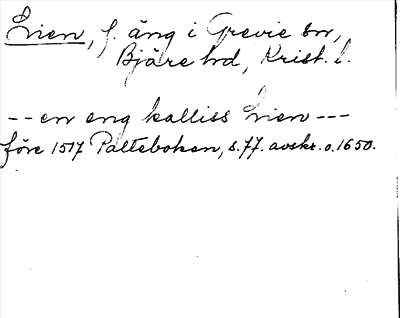 Lrien, f. äng i Grevie sn,
Bjäre hd, Krist. l.
-- en eng kalliss Lrien ---
före 1517 Palteboken, s. 77. avskr. o. 1650.